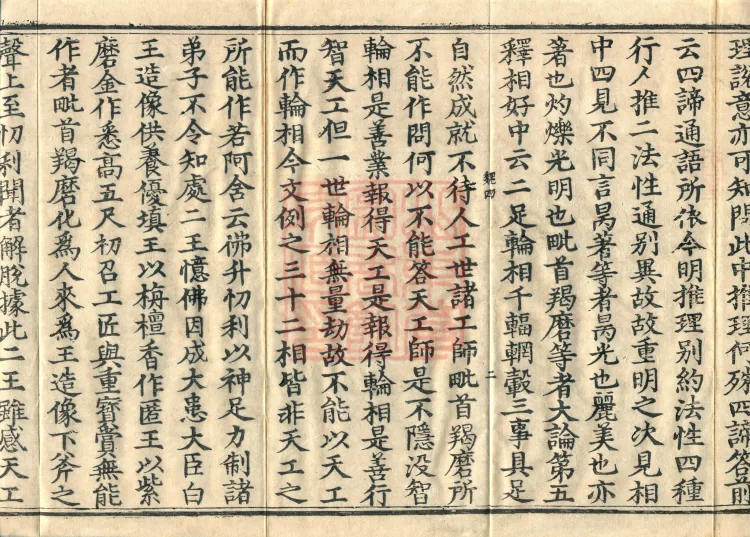 理說意亦可知問此中推理何殊四諦答前
云四諦通語所依今明推理別約法性四種
行人推二法性通別異故故重明之次見相
中四見不同言昺著等者昺光也麗美也亦
著也灼爍光明也毗首羯磨等者大論第五
釋相好中云二足輪相千輻輞轂三事具足
四 二
自然成就不待人工世諸工師毗首羯磨所
不能作問何以不能答天工師是不隱沒智
輪相是善業報得天工是報得輪相是善行
智天工但一世輪相無量劫故不能以天工
而作輪相今文例之三十二相皆非天工之
所能作若阿含云佛升忉利以神足力制諸
弟子不令知處二王憶佛因成大患大臣白
王造像供養優填王以栴檀香作匿王以紫
磨金作悉高五尺初召工匠與重寶賞無能
作者毗首羯磨化爲人來爲王造像下斧之
聲上至忉利聞者解脫據此二王雖感天工